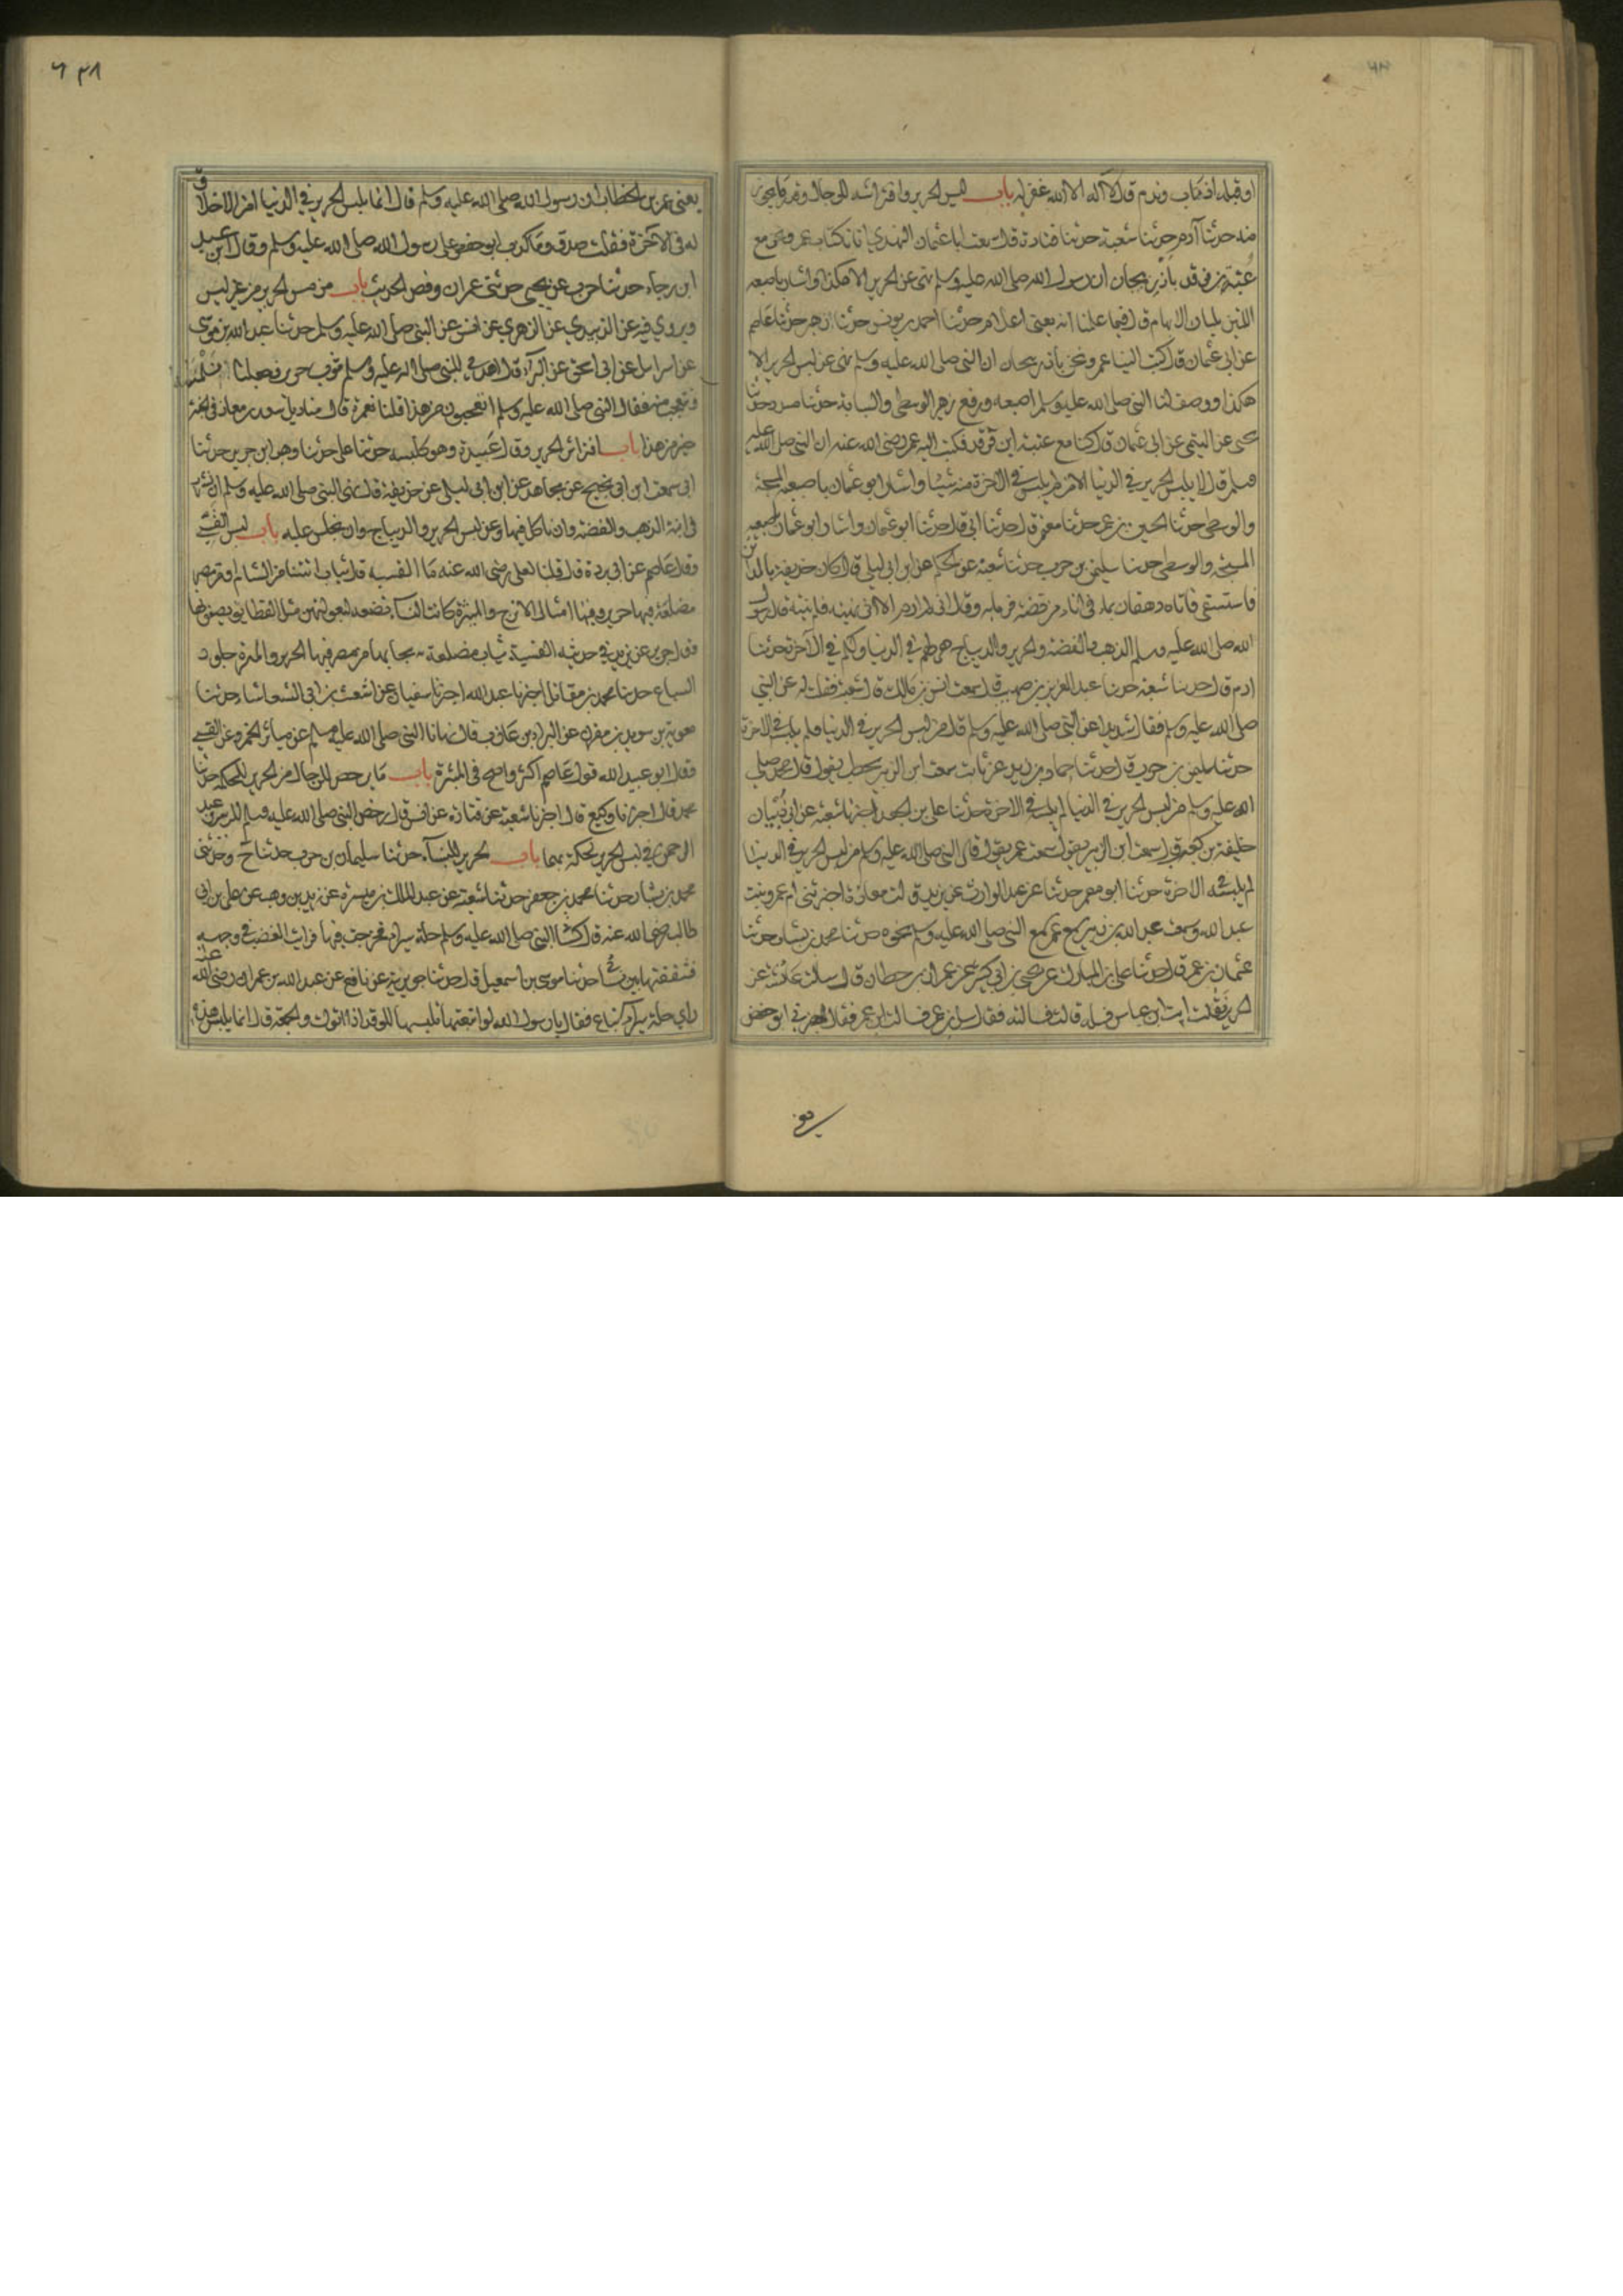 او قبله اذا تاب وندم وقال لا اله الا الله غفر له باب لبس الحرير وافتراشه للرجال وقدر ما يجوز
منه حدثنا آدم حدثنا شعبة حدثنا قتادة قال سمعت ابا عثمان النهدي اتانا كتاب عمر ونحن مع
عتبة بن فرقد باذربيجان ان رسول الله صلى الله عليه وسلم نهى عن الحرير الا هكذا واشار باصبعيه
اللتين تليان الابهام قال فيما علمنا انه يعني الاعلام حدثنا احمد بن يونس حدثنا زهير حدثنا عاصم
عن ابي عثمان قال كتب الينا عمر ونحن باذربيجان ان النبي صلى الله عليه وسلم نهى عن لبس الحرير الا
هكذا ووصف لنا النبي صلى الله عليه وسلم اصبعيه ورفع زهير الوسطى والسبابة حدثنا مسدد حدثنا
يحيى عن التيمي عن ابي عثمان قال كنا مع عتبة ابن فرقد فكتب اليه عمر رضي الله عنه ان النبي صلى الله عليه
وسلم قال لا يلبس الحرير في الدنيا الا من لم يلبس في الآخرة منه شيئا واشار ابو عثمان باصبعيه المسبحة
والوسطى حدثنا الحسن بن عمر حدثنا معتمر قال حدثنا ابي قال حدثنا ابو عثمان واشار ابو عثمان باصبعيه
المسبحة والوسطى حدثنا سليمن بن حرب حدثنا شعبة عن الحكم عن ابن ابي ليلى قال كان حذيفة بالمدائن
فاستسقى فاتاه دهقان بماء في اناء من فضة فرماه به وقال اني لم ارمه الا اني نهيته فلم ينته قال رسول
الله صلى الله عليه وسلم الذهب والفضة والحرير والديباج هي لهم في الدنيا ولكم في الآخرة حدثنا
ادم قال حدثنا شعبة حدثنا عبد العزيز بن صهيب قال سمعت انس بن مالك قال شعبة فقلت له عن النبي
صلى الله عليه وسلم فقال شديدا عن النبي صلى الله عليه وسلم قال من لبس الحرير في الدنيا فلم يلبسه في الاخرة
حدثنا سليمن بن حرب قال حدثنا حماد بن زيد عن ثابت سمعت ابن الزبير يخطب يقول قال محمد صلى
الله عليه وسلم من لبس الحرير في الدنيا لم يلبسه في الاخرة حدثنا علي بن الجعد اخبرنا شعبة عن ابي ذبيان
خليفة بن كعب قال سمعت ابن الزبير يقول سمعت عمر يقول قال النبي صلى الله عليه وسلم من لبس الحرير في الدنيا
لم يلبسه في الاخرة حدثنا ابو معمر حدثنا عبد الوارث عن يزيد قالت معاذة اخبرتني ام عمرو بنت
عبد الله سمعت عبد الله بن زبير سمع عمر سمع النبي صلى الله عليه وسلم نحوه حدثنا محمد بن بشار حدثنا
عثمان بن عمر قال حدثنا علي بن المبارك عن يحيى بن ابي كثير عن عمران بن حطان قال سالت عائشة عن
الحرير فقالت ايت ابن عباس فسله قالت فسالته فقال سل ابن عمر فسالت ابن عمر فقال اخبرني ابو حفص
يعني عمر بن الخطاب ان رسول الله صلى الله عليه وسلم قال انما يلبس الحرير في الدنيا من لا خلاق
له في الآخرة فقلت صدق وما كذب ابو حفص على رسول الله صلى الله عليه وسلم وقال عبد الله
ابن رجاء حدثنا حرب عن يحيى حدثني عمران وقص الحديث باب من مس الحرير من غير لبس
ويروى فيه عن الزبيدي عن الزهري عن انس عن النبي صلى الله عليه وسلم حدثنا عبيد الله بن موسى
عن اسرائيل عن ابي اسحق عن البرآء قال اهدي للنبي صلى الله عليه وسلم ثوب حرير فجعلنا نلمسه
ونتعجب منه فقال النبي صلى الله عليه وسلم اتعجبون من هذا قلنا نعم قال مناديل سعد بن معاذ في الجنة
خير من هذا باب افتراش الحرير وقال عبيدة وهو كلبسه حدثنا علي حدثنا وهب ابن جرير حدثنا
ابي سمعت ابن ابي نجيح عن مجاهد عن ابن ابي ليلى عن حذيفة قال نهى النبي صلى الله عليه وسلم ان نشرب
في آنية الذهب والفضة وان ناكل فيها وعن لبس الحرير والديباج وان نجلس عليه باب لبس القسي
وقال عاصم عن ابي بردة قال قلنا لعلي رضي الله عنه ما القسية قال ثياب اتتنا من الشام او من مصر
مضلعة فيها حرير وفيها امثال الاترج والميثرة كانت النسآء تصنعه لبعولتهن مثل القطايف يصفونها
وقال جرير عن يزيد في حديثه القسية ثياب مضلعة يجاء بها من مصر فيها الحرير والميثرة جلود
السباع حدثنا محمد بن مقاتل اخبرنا عبد الله اخبرنا سفيان عن اشعث بن ابي الشعثاء حدثنا
معوية بن سويد بن مقرن عن البراء بن عازب قال نهانا النبي صلى الله عليه وسلم عن مياثر الحمر وعن القسي
وقال ابو عبد الله قول عاصم اكثر واصح في الميثرة باب ما يرخص للرجال من الحرير للحكة حدثنا
محمد قال اخبرنا وكيع قال اخبرنا شعبة عن قتادة عن انس قال رخص النبي صلى الله عليه وسلم للزبير وعبد
الرحمن في لبس الحرير لحكة بهما باب الحرير للنسآء حدثنا سليمان بن حرب حدثنا شعبة ح وحدثني
محمد بن بشار حدثنا محمد بن جعفر حدثنا شعبة عن عبد الملك بن ميسرة عن زيد بن وهب عن علي بن ابي
طالب رضي الله عنه قال كساني النبي صلى الله عليه وسلم حلة سيراء فخرجت فيها فرايت الغضب في وجهه
فشققتها بين نسائي حدثنا موسى بن اسمعيل قال حدثنا جويرية عن نافع عن عبد الله بن عمر ان عمر رضي الله عنه
راى حلة سيراء تباع فقال يا رسول الله لو ابتعتها تلبسها للوفد اذا اتوك والجمعة قال انما يلبس هذه